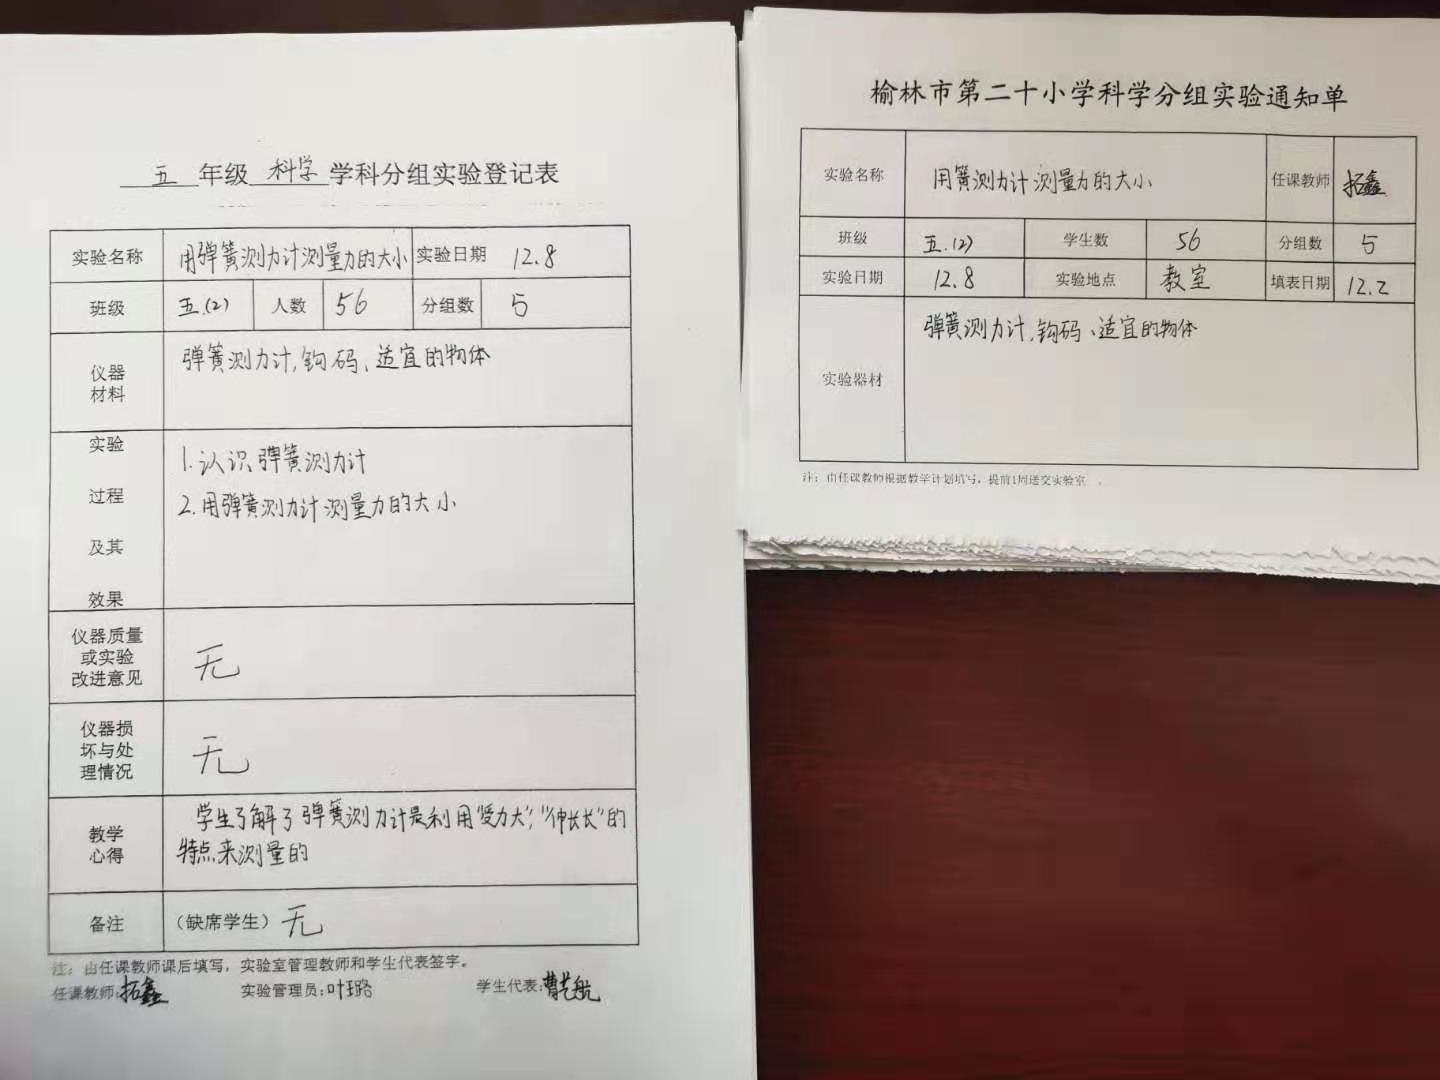 五年级科学学科分组实验登记表
实验名称 用弹簧测力计测量力的大小 实验日期 12.8
班级 五.(2) 人数 56 分组数 5
仪器
材料
弹簧测力计,钩码、适宜的物体
实验
过程
及其
效果
1.认识弹簧测力计
2.用弹簧测力计测量力的大小
仪器质量
或实验
改进意见
无
仪器损
坏与处
理情况
无
教学
心得
学生了解了弹簧测力计是利用"受力大","伸长长"的
特点来测量的
备注 (缺席学生) 无
注:由任课教师课后填写,实验室管理教师和学生代表签字。
任课教师:拓鑫 实验管理员:叶璐 学生代表:曹艺航
榆林市第二十小学科学分组实验通知单
实验名称 用簧测力计测量力的大小 任课教师 拓鑫
班级 五.(2) 学生数 56 分组数 5
实验日期 12.8 实验地点 教室 填表日期 12.2
实验器材
弹簧测力计,钩码、适宜的物体
注:由任课教师根据教学计划填写,提前1周送交实验室